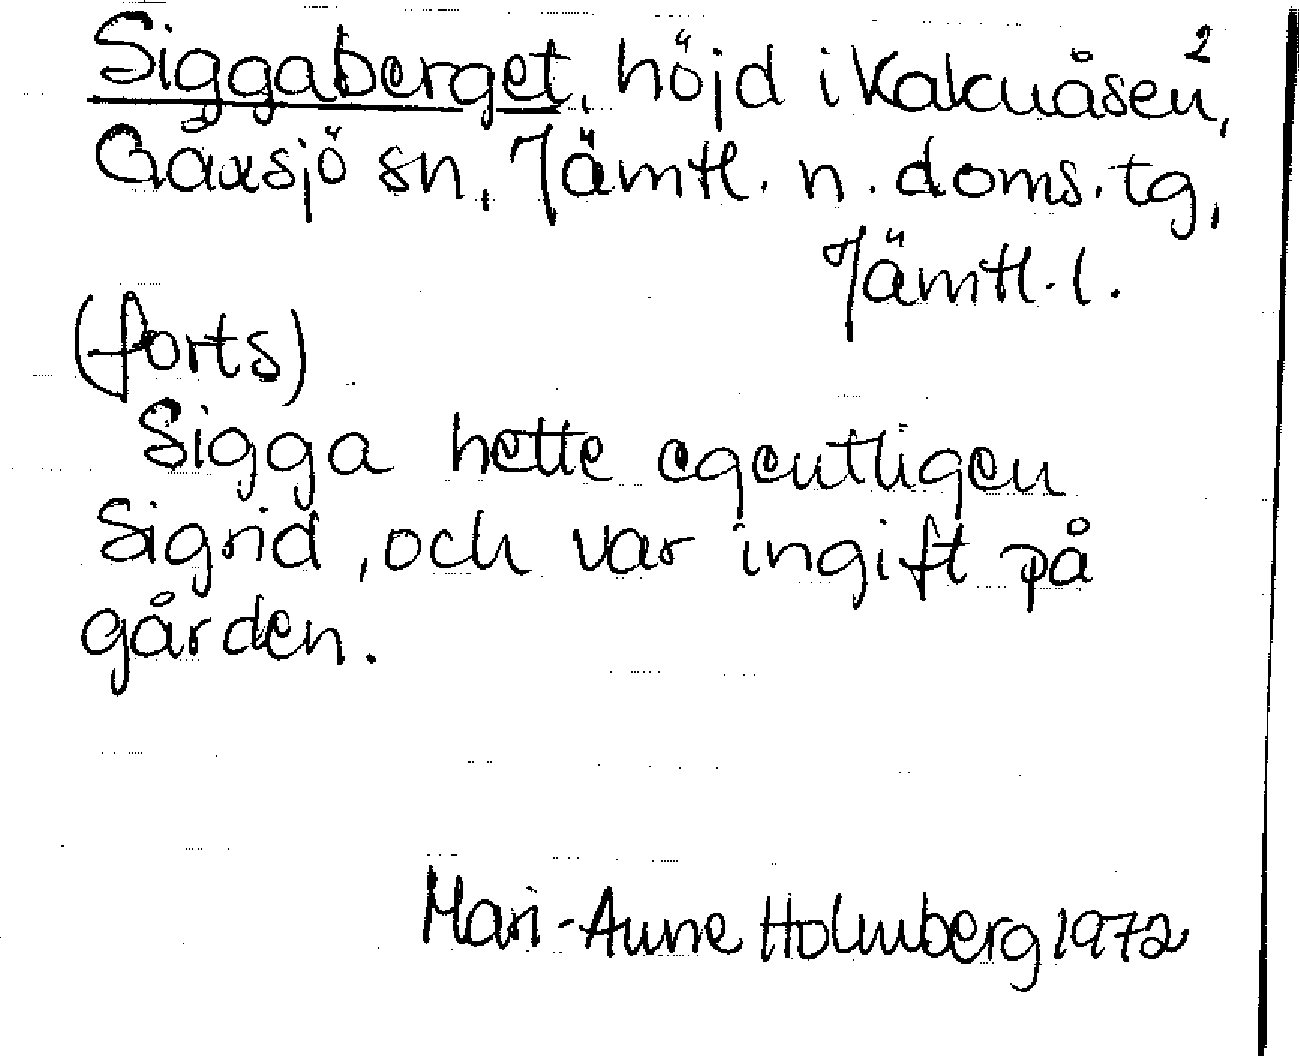 2
Siggaberget, höjd i Kakuåsen,
Gåxsjö sn, Jämtl. n. doms. tg,
Jämtl. l.
(forts)
Sigga hette egentligen
Sigrid, och var ingift på
gården.
Mari-Anne Holmberg 1972